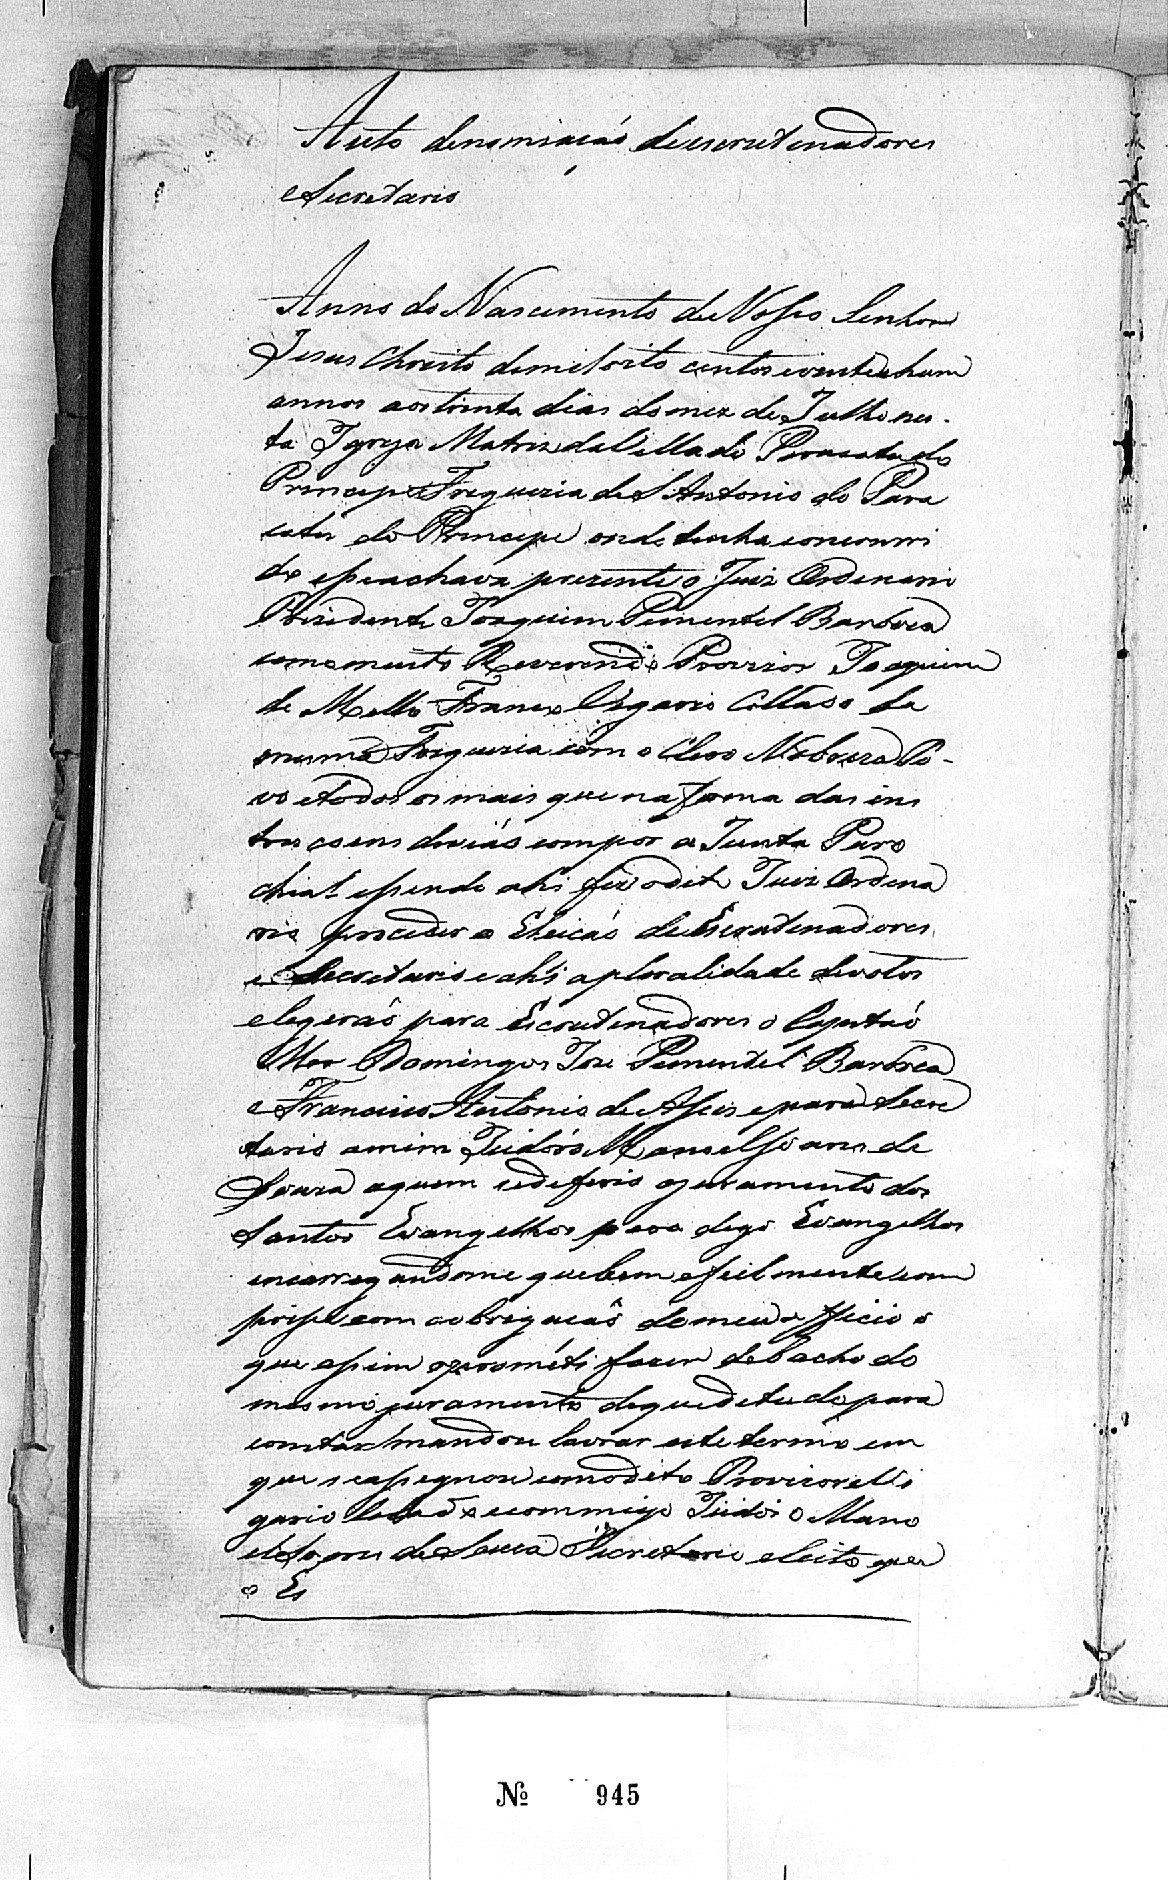 Auto denomiacaó deescrutenadores
eSecretario
Anno do Nascimento de Nosso Senhor
Jesus Christo demiloito centos evintehum
annos aostrinta dias domez de Julho nes-
ta Igreja Matriz daVilla do Paracatu do
Principe Freguezia deS Antonio do Para
catu do Principe onde tenha concorri
do eseachava prezente o Juiz Ordenario
Prezidente Joaquim Pimentel Barboza
como muito Reverendo Provizor Joaquim
de Mello Franco Vigario Collado da
mesma Freguezia com o Clero Nobreza Po-
vo etodos os mais que na forma das ins
truçoens deviaó compor a Junta Paro
chial esendo ahi fez odito Juiz Ordena
rio proceder a Eleicaó deEscrutenadores
e Secretario eahi apluralidade devotos
elegeraó para Escrutenadores o Capitaó
Mor Domingos Joze Pimentel Barboza
e Francisco Antonio de Assis epara Secre
tario amim Izidoro Manoel Soares de
Souza aquem sedeferio ojuramento dos
Santos Evangelhos para digo Evangelhos
encarregandome quebem efielmente com
prise com aobrigacaó demeu officio o
que assim oprometi fazer debacho do
mesmo juramento dequedetudo para
constar mandou lavrar este termo em
que seassegnou comodito Provizor eVi
gario Collado ecommigo Izidoro Mano
el Soares de Souza Secretario eleito que
o Es
Nº 945